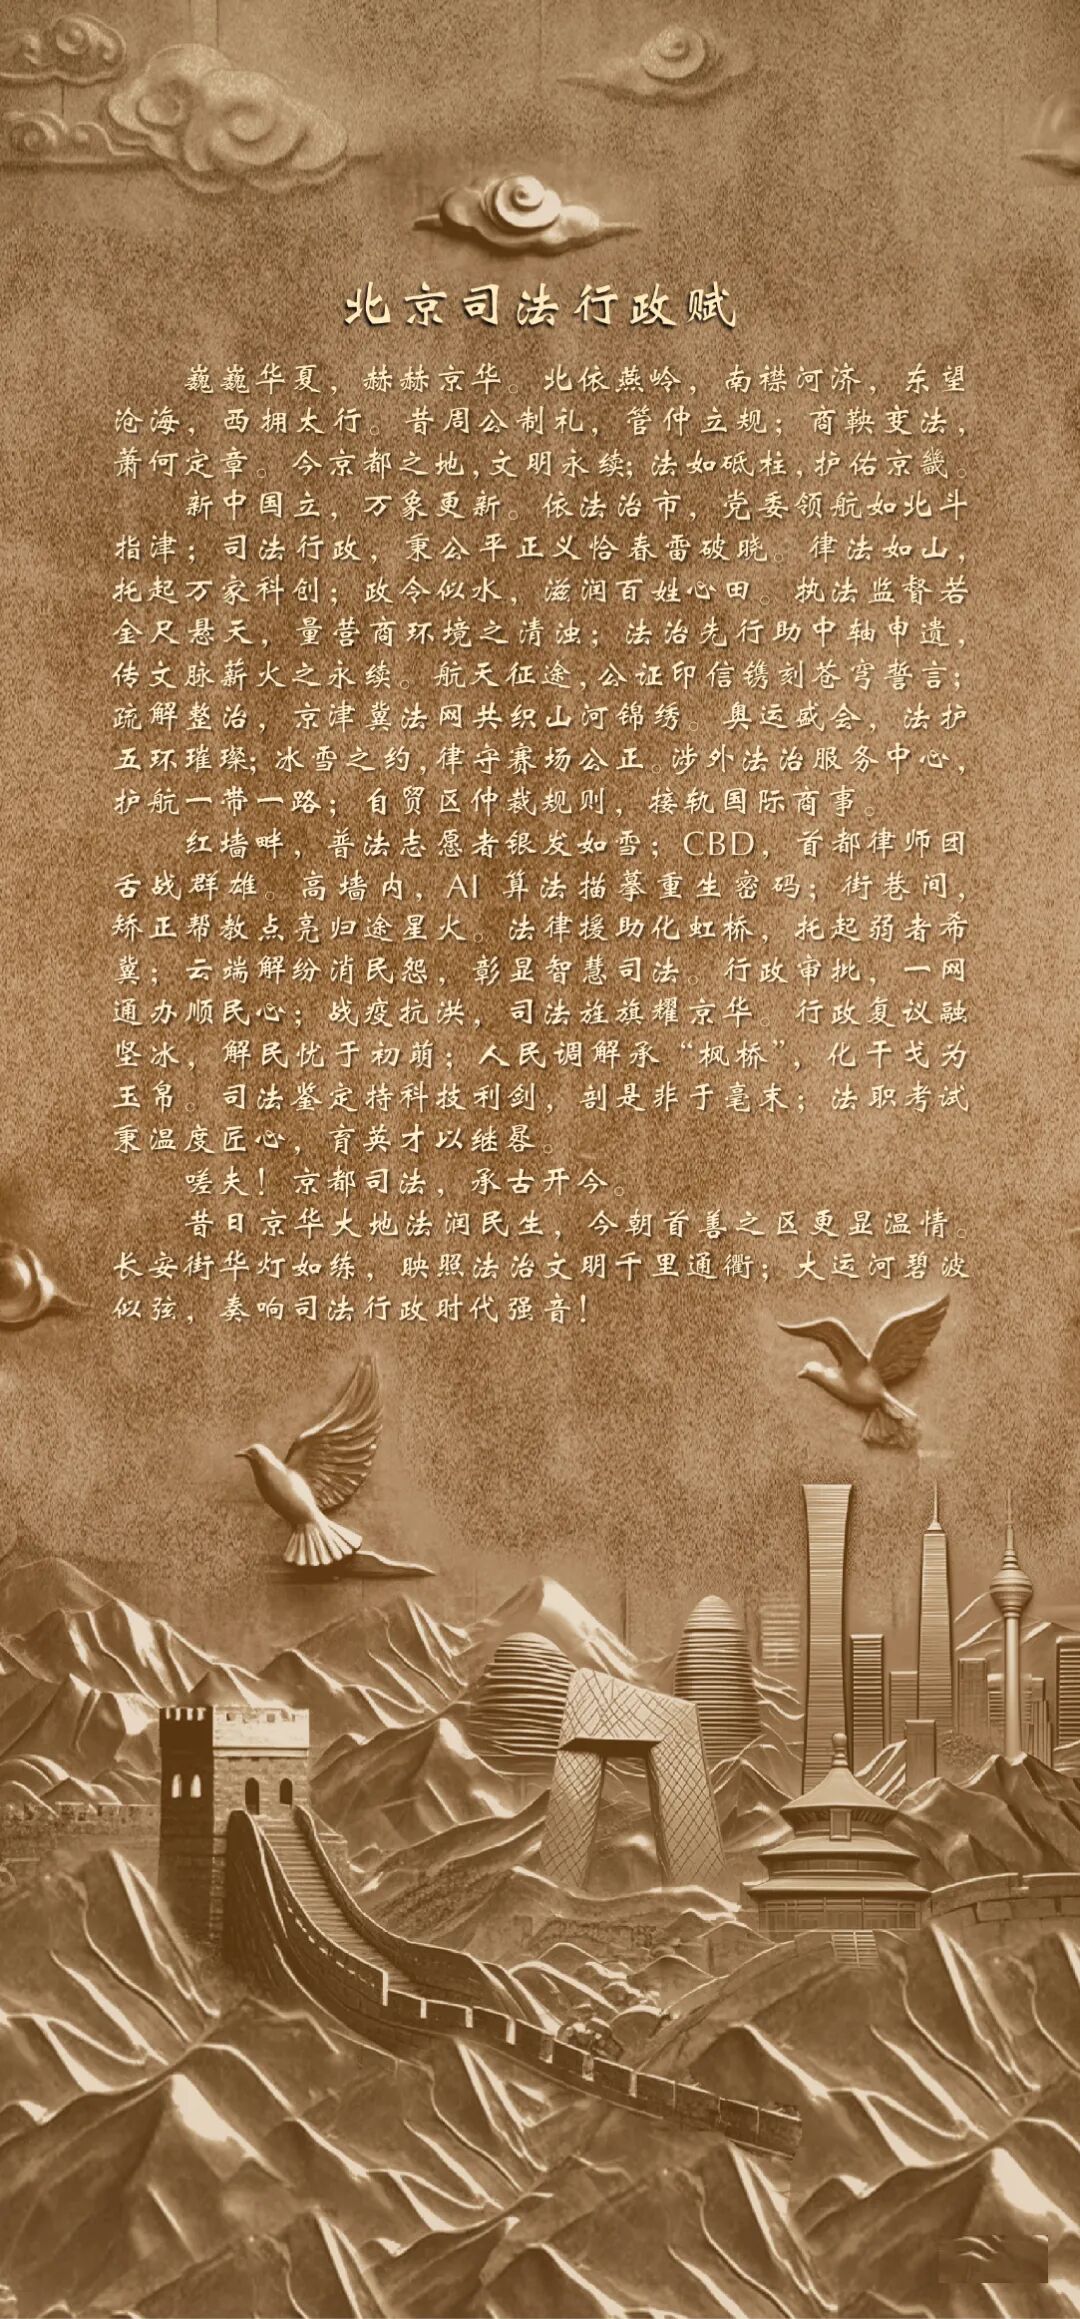 北京司法行政赋
巍巍华夏，赫赫京华。北依燕岭，南襟河济，东望
沧海，西拥太行。昔周公制礼，管仲立规；商鞅变法，
萧何定章。今京都之地，文明永续；法如砥柱，护佑京畿。
新中国立，万象更新。依法治市，党委领航如北斗
指津；司法行政，秉公平正义恰春雷破晓。律法如山，
托起万家科创；政令似水，滋润百姓心田。执法监督若
金尺悬天，量营商环境之清浊；法治先行助中轴申遗，
传文脉薪火之永续。航天征途，公证印信镌刻苍穹誓言；
疏解整治，京津冀法网共织山河锦绣。奥运盛会，法护
五环璀璨；冰雪之约，律守赛场公正。涉外法治服务中心，
护航一带一路；自贸区仲裁规则，接轨国际商事。
红墙畔，普法志愿者银发如雪；CBD，首都律师团
舌战群雄。高墙内，AI 算法描摹重生密码；街巷间，
矫正帮教点亮归途星火。法律援助化虹桥，托起弱者希
冀；云端解纷消民怨，彰显智慧司法。行政审批，一网
通办顺民心；战疫抗洪，司法旌旗耀京华。行政复议融
坚冰，解民忧于初萌；人民调解承“枫桥”，化干戈为
玉帛。司法鉴定持科技利剑，剖是非于毫末；法职考试
秉温度匠心，育英才以继晷。
嗟夫！京都司法，承古开今。
昔日京华大地法润民生，今朝首善之区更显温情。
长安街华灯如练，映照法治文明千里通衢；大运河碧波
似弦，奏响司法行政时代强音！